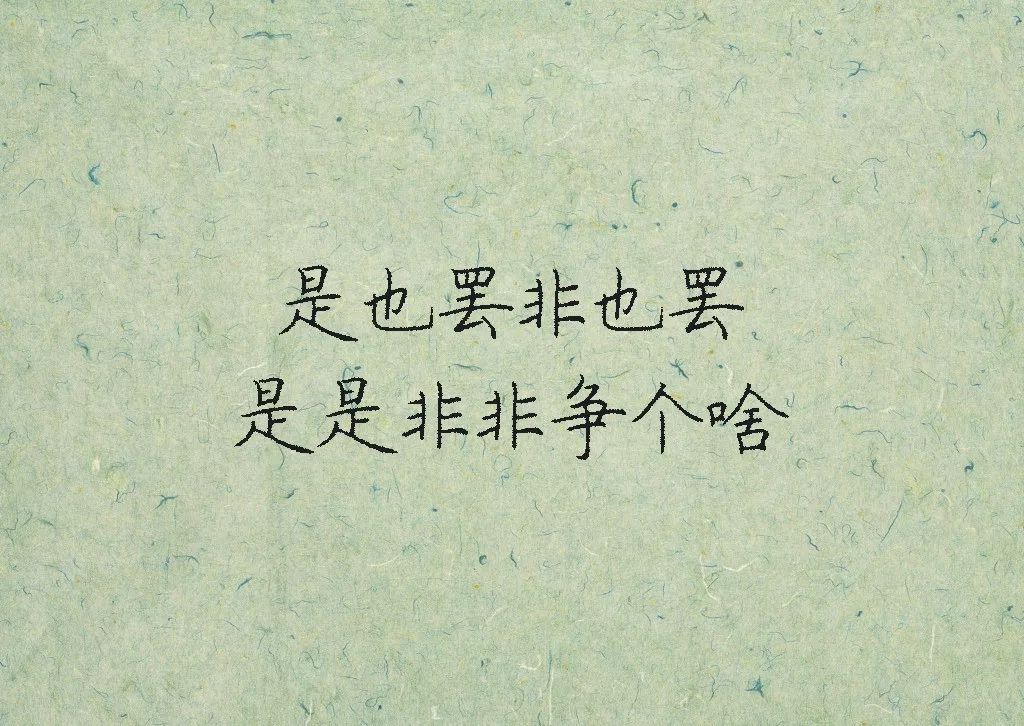 是也罢非也罢
是是非非争个啥